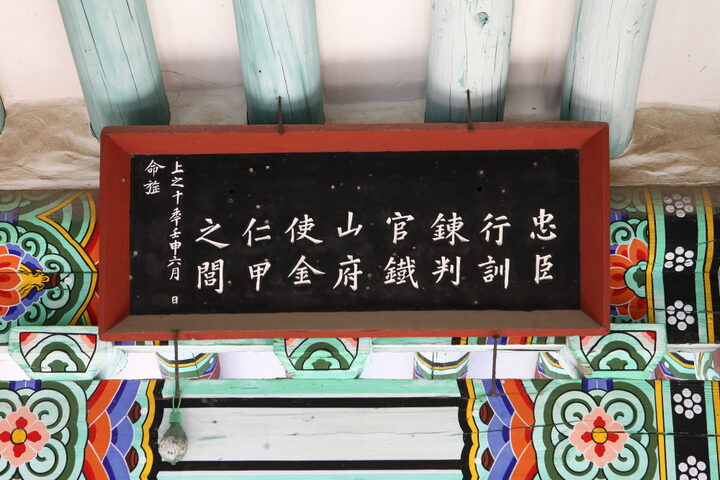 忠臣
行訓
鍊判
官鐵
山府
使金
仁甲
之閭
上之十年壬申六月 日
命旌